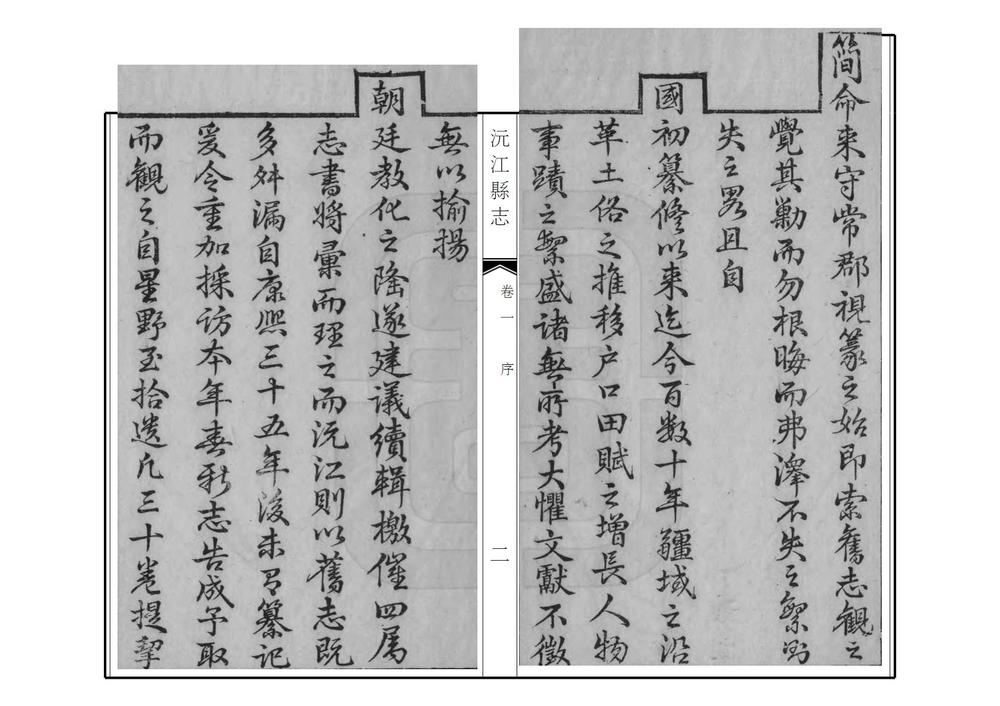 簡命來守常郡視篆之始即索舊志觀之
覺其勦而勿根晦而弗澤不失之繁則
失之畧且自
國初纂修以來迄今百數十年疆域之沿
革土俗之推移户口田賦之增長人物
事蹟之繁盛諸無所考大懼文獻不徵
沅江縣志
卷一
序
二
無以揄揚
朝廷教化之隆遂建議續輯檄催四属
志書將彙而理之而沅江則以舊志既
多舛漏自康熙三十五年後未有纂記
爰令重加採访本年春新志告成予取
而觀之自星野至拾遺凡三十卷提挈